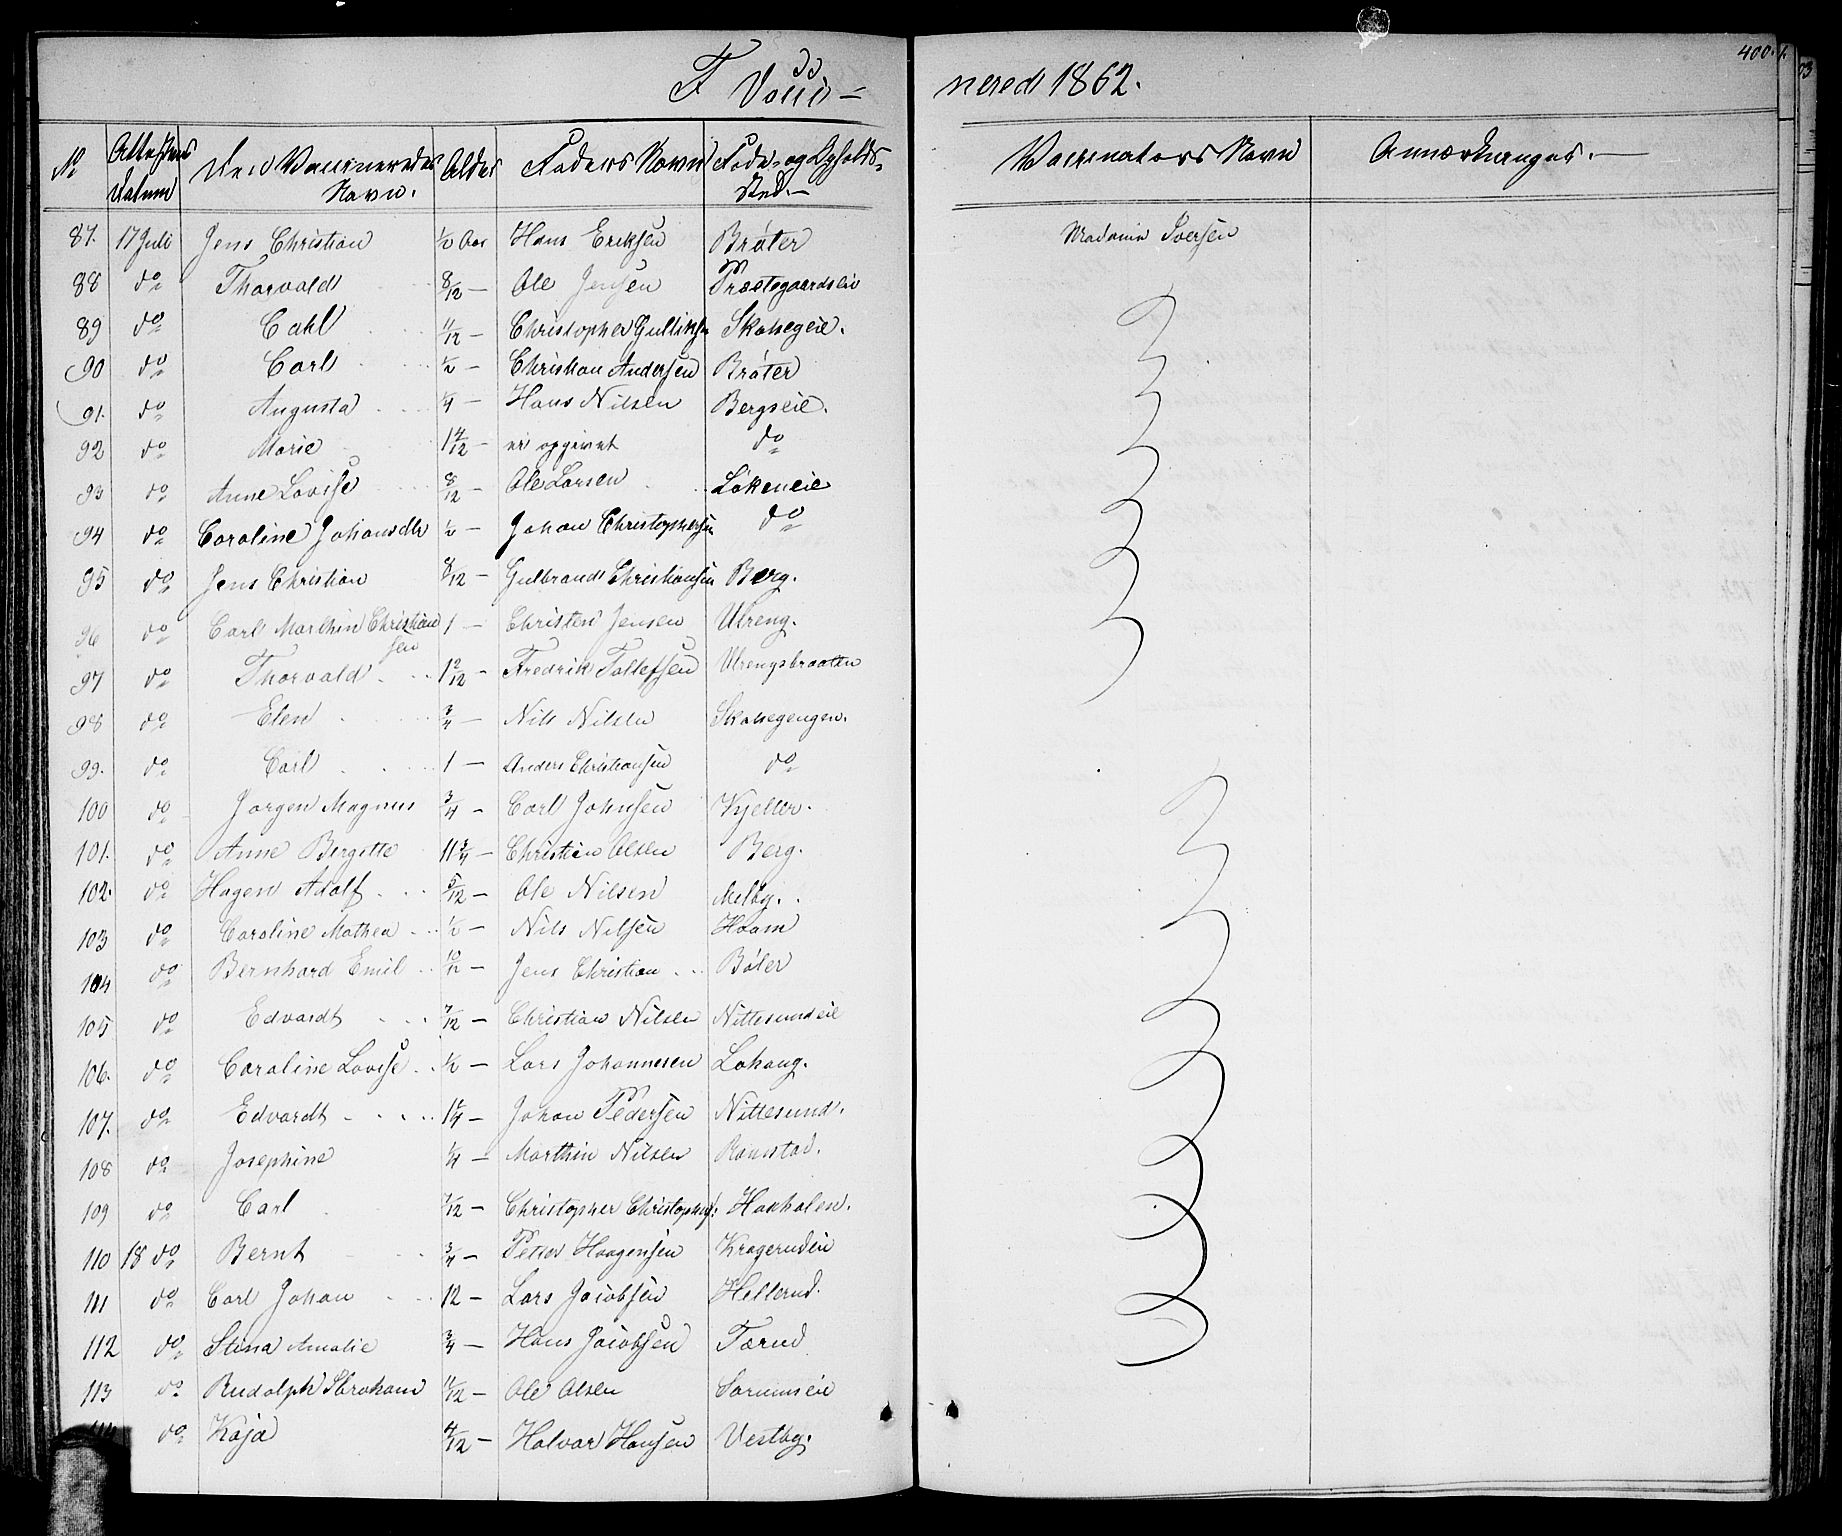 400.
F Vacci-
nerede 1862.
No Attestens Datum Den Vaccineredes Navn. Alder Faders Navn Føde- og Opholds-Sted.- Vaccinators Navn Anmærkninger.-
87. 17 Juli Jens Christian 1/2 Aar Hans Eriksen Brøter Madame Iversen
88 do Thorvald 8/12 - Ole Jensen Præstegaardseie
89 do Carl 11/12 - Christopher Gulliksen
90 do Carl 1/2 - Christian Andersen Brøter
91. do Augusta 1/4 - Hans Nilsen Bergseie.
92 do Marie 1 4/12 - ei opgivet do
93 do Anne Lovise 8/12 - Ole Larsen Løkeneie
94 do Caroline Johansdtr 1/2 - Johan Christophersen do
95 do Jens Christian 8/12 - Gulbrand Christiansen Berg.
96 do Carl Marthin Christiansen 1 - Christen Jensen Ulreng.
97 do Thorvald 1 2/12 - Fredrik Tollefsen Ulrengsbraaten
98 do Elen 3/4 - Nils Nilsen
99. do Carl 1 - Anders Christiansen do
100 do Jørgen Magnus 3/4 - Carl Johnsen Kjeller.
101. do Anne Bergitte 11 3/4 - Christian Olsen Berg.
102. do Hagen Adolf 5/12 - Ole Nilsen Melby.
103 do Caroline Mathea 1/2 - Nils Nilsen Haam
104 do Bernhard Emil 10/12 - Jens Christian Bøler
105 do Edvardt 7/12 - Christian Nilsen Nittesundeie
106. do Caroline Lovise 1/2 - Lars Johannesen Lahaug.
107. do Edvardt 1 1/4 - Johan Pedersen Nittesund.
108 do Josephine 1/4 - Marthin Nilsen Ramstad.
109 do Carl 7/12 - Christopher Christophs:
110 18 do Bernt 3/4 - Petter Haagensen Kragerudeie
111 do Carl Johan 12 - Lars Jacobsen Hellerud.
112 do Stina Amalie 3/4 - Hans Jacobsen Tærud
113 do Rudolph Abraham 11/12 - Ole Olsen Sørumseie
do Kaja 4/12 - Halvor Hansen Vestby.